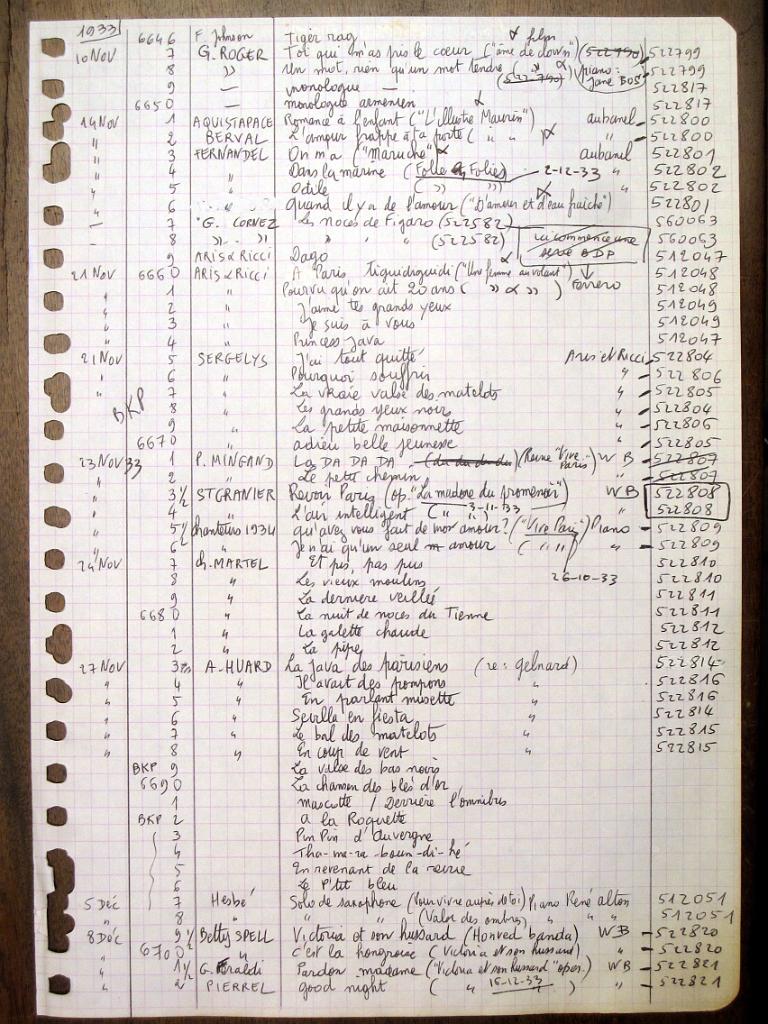 1933 6646 F. Johnson Tiger rag
10 Nov 7 G. ROGER Toi qui m'as pris le coeur ("âme de clown") film (522790) 522799
8 " Un mot, rien qu'un mot tendre ( " ) (522790) piano: Jane BOS 522799
9 — monologue — 522817
6650 — monologue armenien 522817
14 Nov 1 AQUISTAPACE Romance à l'enfant ("L'illustre Maurin") aubanel 522800
" 2 BERVAL L'amour frappe à ta porte ( " " ) " 522800
" 3 FERNANDEL On m a ("Maruche") aubanel 522801
" 4 " Dans la marine (Folies Folies) 2-12-33 " 522802
" 5 " Odile ( " " ) 522802
" 6 " Quand il y a de l'amour ("D'amour et d'eau fraiche") 522801
— 7 G. CORNEZ Les noces de Figaro (522582) 560063
— 8 " " " " (522582) ici commence une serie BDP 560063
9 ARIS & RICCI Dago 512047
21 Nov 6660 ARIS & RICCI A Paris Tiguidiguidi ("Une femme au volant") 512048
" 1 " Pourvu qu'on ait 20 ans ( " " ) Ferrero 512048
" 2 " J'aime tes grands yeux 512049
" 3 " Je suis à vous 512049
" 4 " Princess Java 512047
21 Nov 5 SERGELYS J'ai tout quitté Aris et Ricci 522804
" 6 " Pourquoi souffrir " 522806
" 7 " La vraie valse des matelots " 522805
BKP 8 " Les grands yeux noirs " 522804
9 " La petite maisonnette " 522806
6670 " adieu belle jeunesse " 522805
23 Nov 33 1 P. MINGAND La DA DA DA (da du du du) (Revue "Vive Paris") W B 522807
" 2 " Le petit chemin " 522807
" 3 1/2 ST GRANIER Revoir Paris (op. "La madone du promenoir") W B 522808
" 4 " L'air intelligent ( " 3-11-33 ) " 522808
" 5 1/2 Chanteurs 1934 qu'avez vous fait de mon amour? ("Vive Paris") Piano 522809
" 6 " Je n'ai qu'un seul amour ( " " ) " 522809
24 Nov 7 Ch. MARTEL Et pis, pas pus 522810
8 " Les vieux moulins 26-10-33 522810
9 " La derniere veillée 522811
6680 " La nuit de noces du Tienne 522811
1 " La galette chaude 522812
2 " La pipe 522812
27 Nov 3 A. HUARD La Java des parisiens (re: Gelnard) 522814
" 4 " Il avait des pompons " 522816
" 5 " En parlant musette " 522816
" 6 " Sevilla en fiesta " 522814
" 7 " Le bal des matelots " 522815
" 8 " En coup de vent " 522815
BKP 9 La valse des bas noirs
6690 La chanson des blés d'or
1 mascotte / Derriere l'omnibus
BKP 2 a la Roquette
3 Pin Pin d'Auvergne
4 Tha-ma-ra-boum-di-hé
5 En revenant de la revue
6 Le p'tit bleu
5 Déc 7 Hesbé Solo de saxophone (Pour vivre auprès de toi) Piano René alton 512051
" 8 " " " (Valse des ombres) " " " 512051
8 Déc 9 1/2 Betty SPELL Victoria et son hussard (Honved banda) W B 522820
" 6700 " c'est la hongroise (Victoria et son hussard) " 522820
" 1 1/2 G. Eraldi Pardon madame ("Victoria et son hussard" oper.) W B 522821
" 2 PIERREL good night ( " 16-12-33 ) " 522821